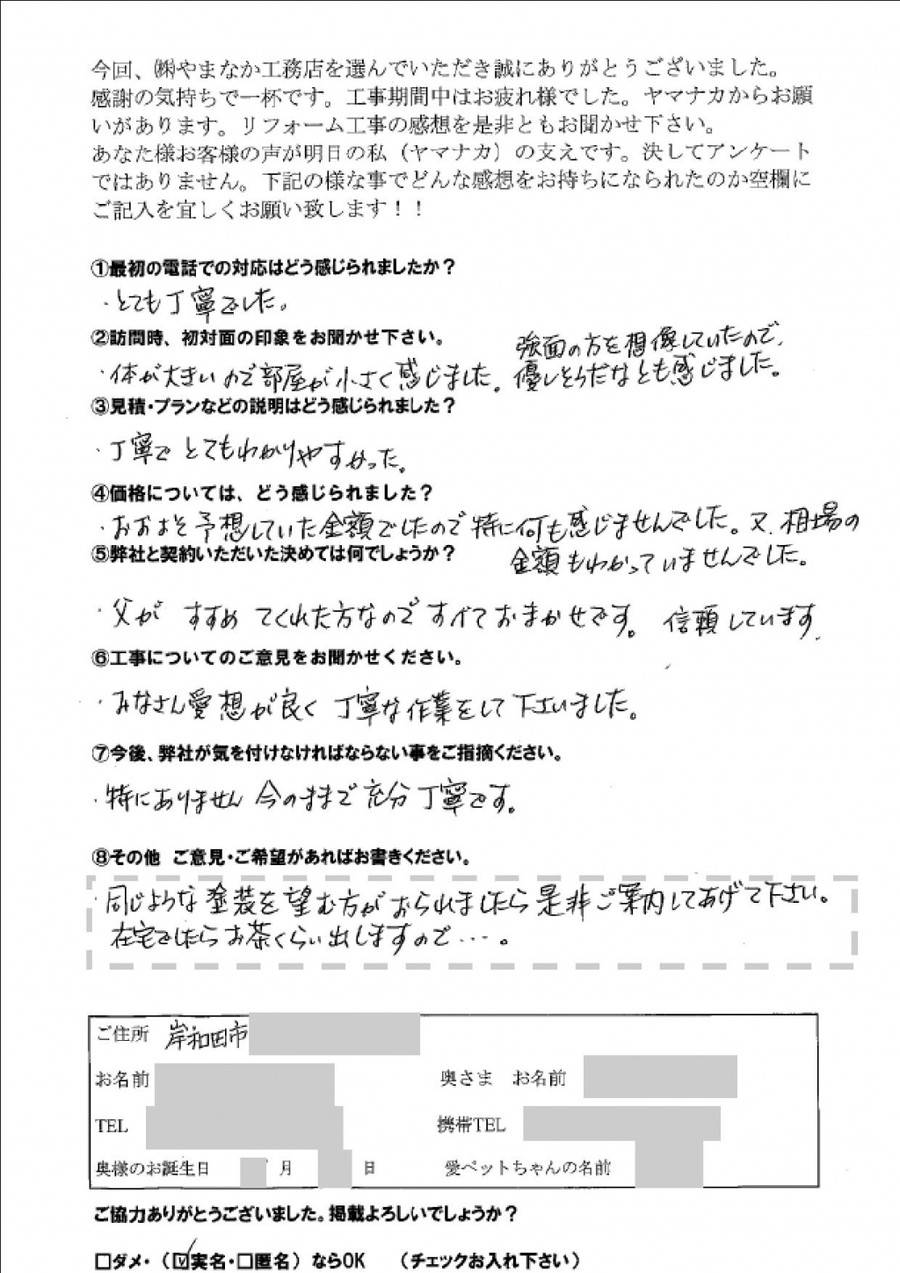 今回、㈱やまなか工務店を選んでいただき誠にありがとうございました。
感謝の気持ちで一杯です。工事期間中はお疲れ様でした。ヤマナカからお願
いがあります。リフォーム工事の感想を是非ともお聞かせ下さい。
あなた様お客様の声が明日の私（ヤマナカ）の支えです。決してアンケート
ではありません。下記の様な事でどんな感想をお持ちになられたのか空欄に
ご記入を宜しくお願い致します！！
①最初の電話での対応はどう感じられましたか？
・とても丁寧でした。
②訪問時、初対面の印象をお聞かせ下さい。
・体が大きいので部屋が小さく感じました。
強面の方を想像していたので、
優しそうだなとも感じました。
③見積・プランなどの説明はどう感じられました？
・丁寧で とてもわかりやすかった。
④価格については、どう感じられました？
・おおよそ予想していた金額でしたので特に何も感じませんでした。又、相場の
金額もわかっていませんでした。
⑤弊社と契約いただいた決めては何でしょうか？
・父が すすめ てくれた方なので すべておまかせです。 信頼しています。
⑥工事についてのご意見をお聞かせください。
・みなさん愛想が良く 丁寧な作業をして下さいました。
⑦今後、弊社が気を付けなければならない事をご指摘ください。
・特にありません 今のままで充分丁寧です。
⑧その他 ご意見・ご希望があればお書きください。
・同じような塗装を望む方がおられましたら是非ご案内してあげて下さい。
在宅でしたらお茶くらい出しますので…。
ご住所 岸和田市
お名前 奥さま お名前
TEL 携帯TEL
奥様のお誕生日 月 日 愛ペットちゃんの名前
ご協力ありがとうございました。掲載よろしいでしょうか？
□ダメ・（☑実名・□匿名）ならOK （チェックお入れ下さい）